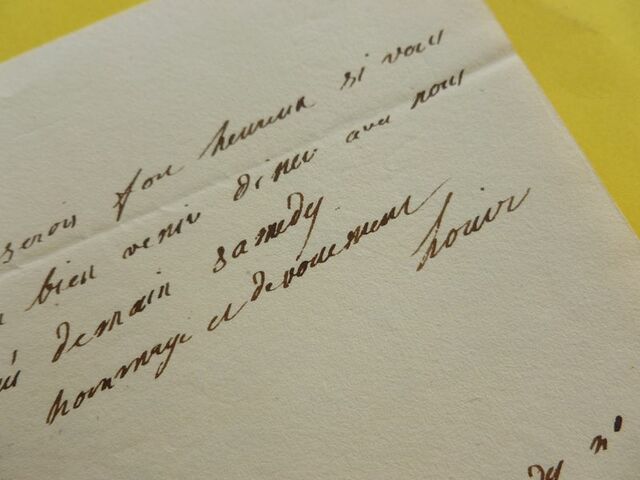 serois fort heureux si vous
bien venir diner avec nous
demain samedy
hommage et devouement
dy n°